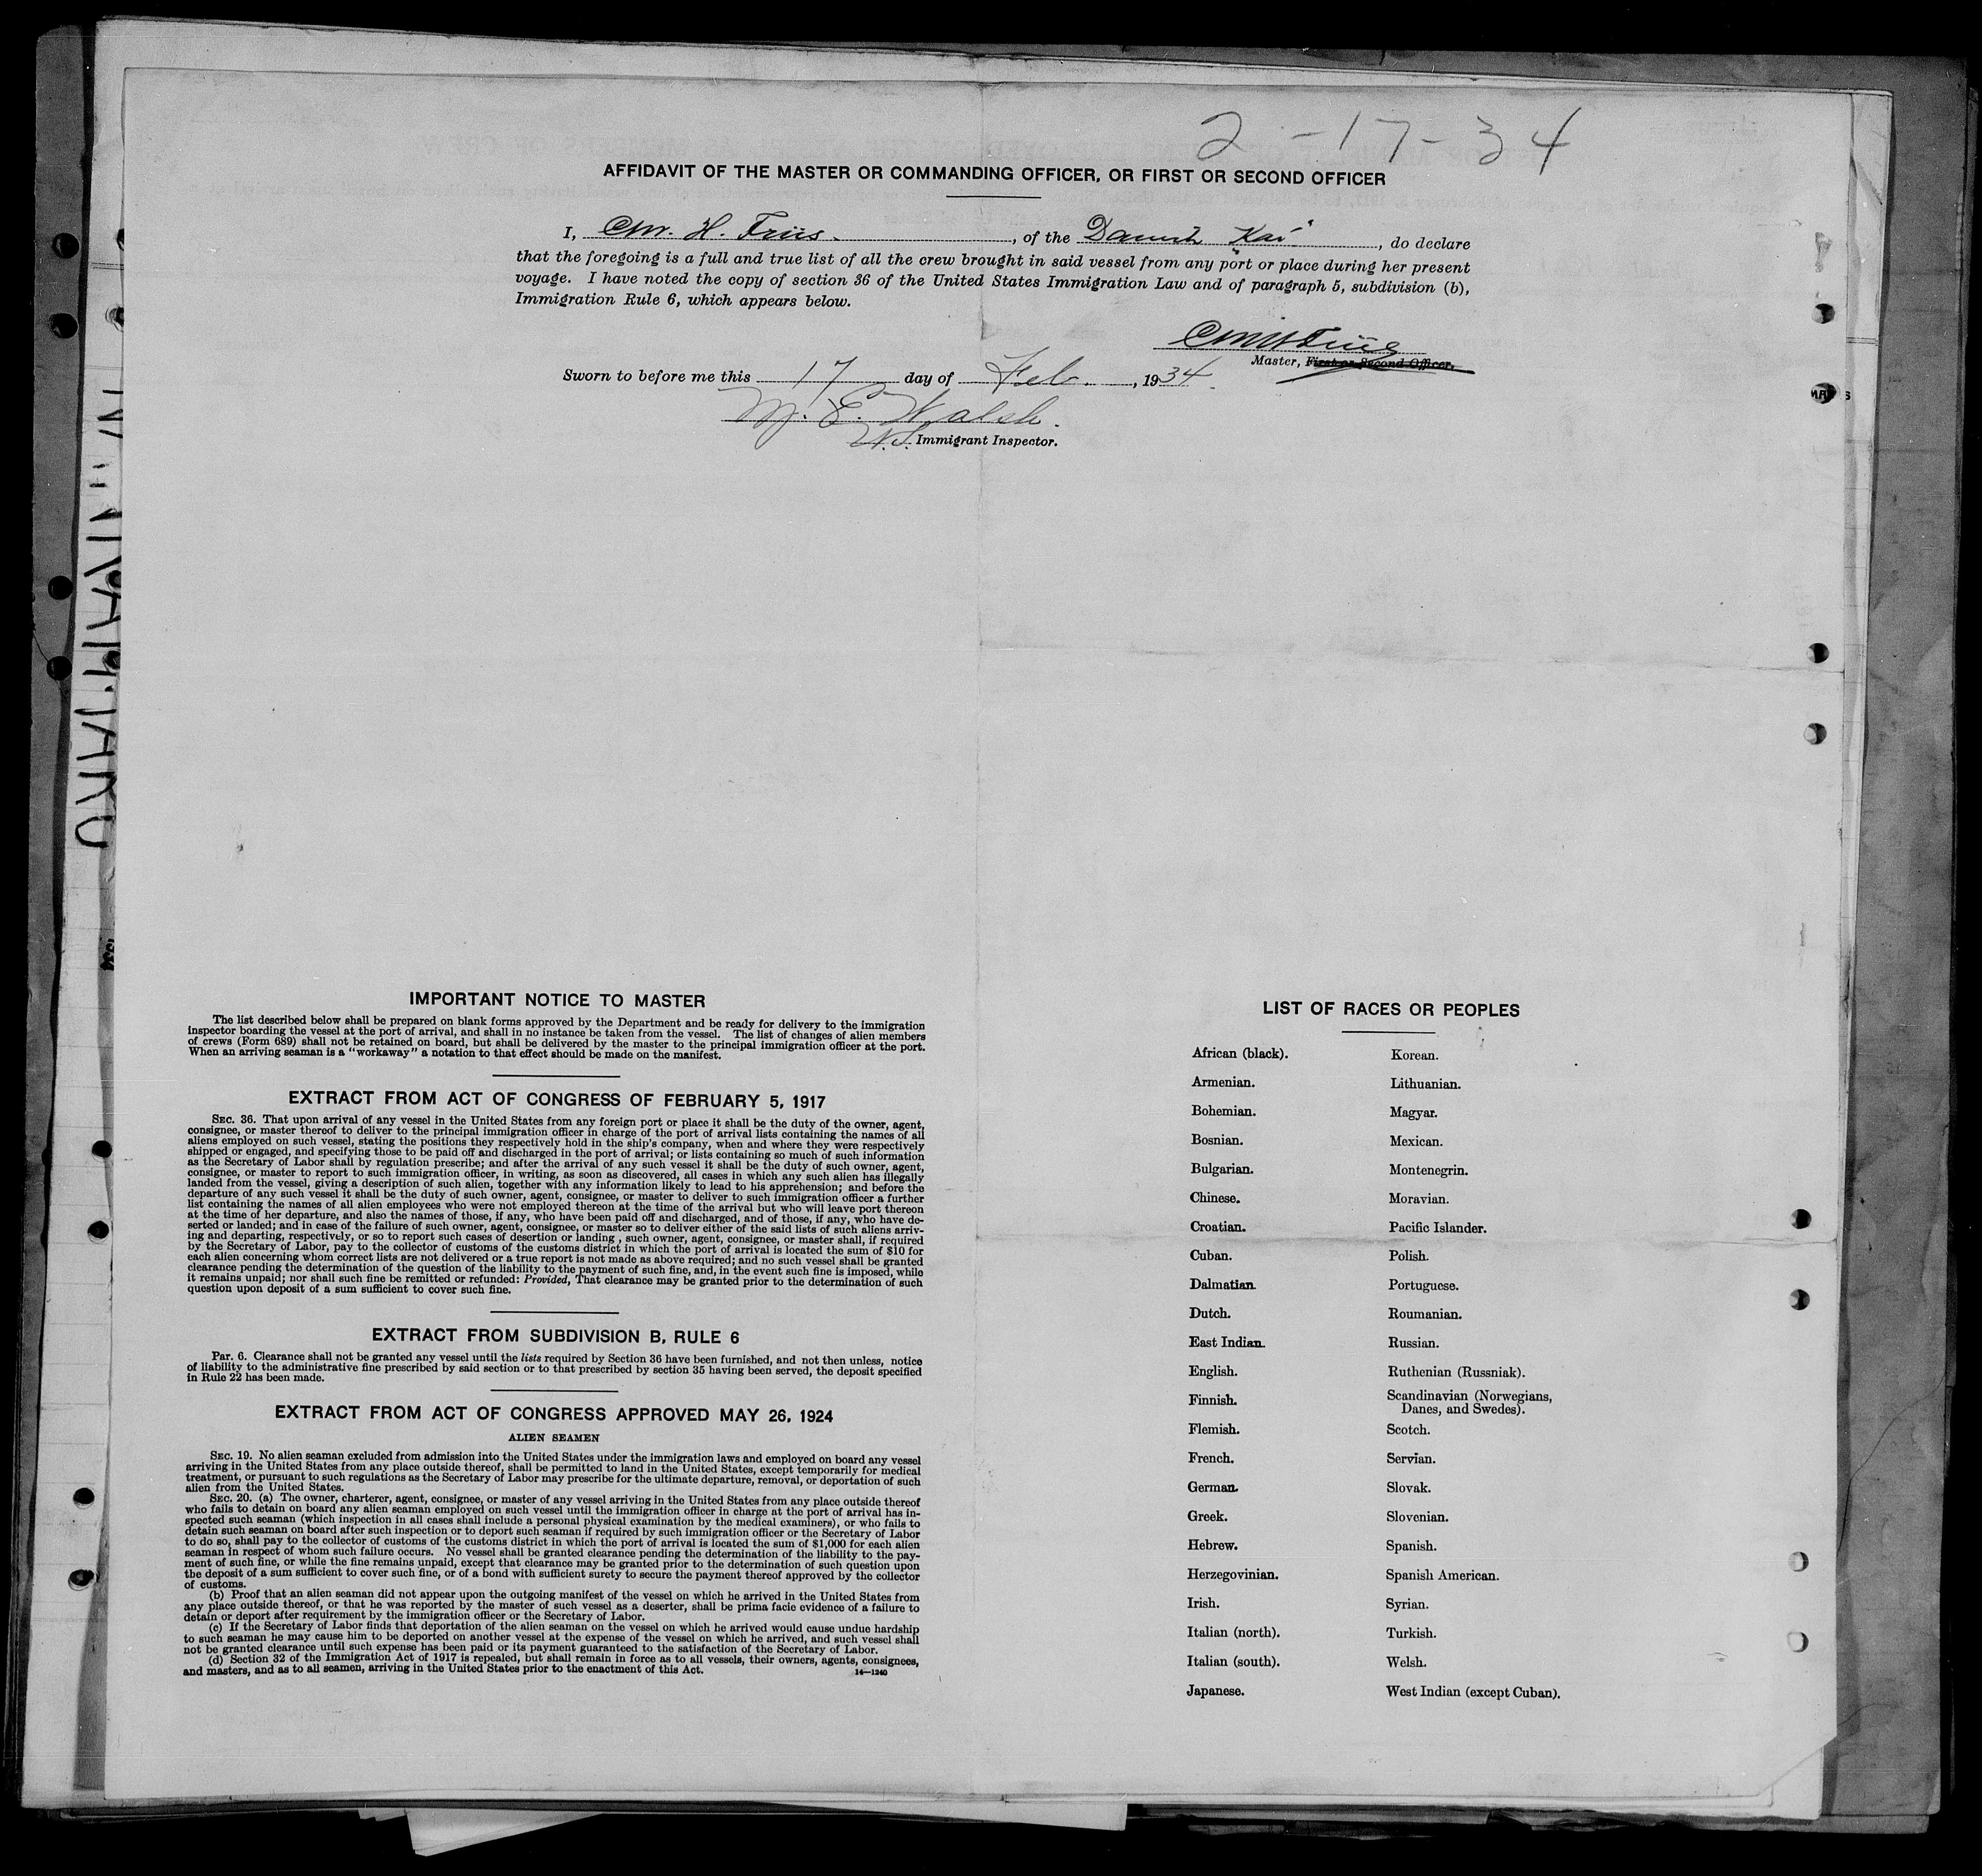 2-17-34
AFFIDAVIT OF THE MASTER OR COMMANDING OFFICER, OR FIRST OR SECOND OFFICER
I, Chr. H. Friis., of the Danish "Kai", do declare
that the foregoing is a full and true list of all the crew brought in said vessel from any port or place during her present
voyage. I have noted the copy of section 36 of the United States Immigration Law and of paragraph 5, subdivision (b),
Immigration Rule 6, which appears below.
Chr H Friis
Master, First or Second Officer.
Sworn to before me this 17 day of Feb., 1934.
M. E. Walsh.
U.S. Immigrant Inspector.
IMPORTANT NOTICE TO MASTER
The list described below shall be prepared on blank forms approved by the Department and be ready for delivery to the immigration
inspector boarding the vessel at the port of arrival, and shall in no instance be taken from the vessel. The list of changes of alien members
of crews (Form 689) shall not be retained on board, but shall be delivered by the master to the principal immigration officer at the port.
When an arriving seaman is a "workaway" a notation to that effect should be made on the manifest.
EXTRACT FROM ACT OF CONGRESS OF FEBRUARY 5, 1917
SEC. 36. That upon arrival of any vessel in the United States from any foreign port or place it shall be the duty of the owner, agent,
consignee, or master thereof to deliver to the principal immigration officer in charge of the port of arrival lists containing the names of all
aliens employed on such vessel, stating the positions they respectively hold in the ship's company, when and where they were respectively
shipped or engaged, and specifying those to be paid off and discharged in the port of arrival; or lists containing so much of such information
as the Secretary of Labor shall by regulation prescribe; and after the arrival of any such vessel it shall be the duty of such owner, agent,
consignee, or master to report to such immigration officer, in writing, as soon as discovered, all cases in which any such alien has illegally
landed from the vessel, giving a description of such alien, together with any information likely to lead to his apprehension; and before the
departure of any such vessel it shall be the duty of such owner, agent, consignee, or master to deliver to such immigration officer a further
list containing the names of all alien employees who were not employed thereon at the time of the arrival but who will leave port thereon
at the time of her departure, and also the names of those, if any, who have been paid off and discharged, and of those, if any, who have de-
serted or landed; and in case of the failure of such owner, agent, consignee, or master so to deliver either of the said lists of such aliens arriv-
ing and departing, respectively, or so to report such cases of desertion or landing , such owner, agent, consignee, or master shall, if required
by the Secretary of Labor, pay to the collector of customs of the customs district in which the port of arrival is located the sum of $10 for
each alien concerning whom correct lists are not delivered or a true report is not made as above required; and no such vessel shall be granted
clearance pending the determination of the question of the liability to the payment of such fine, and, in the event such fine is imposed, while
it remains unpaid; nor shall such fine be remitted or refunded: Provided, That clearance may be granted prior to the determination of such
question upon deposit of a sum sufficient to cover such fine.
EXTRACT FROM SUBDIVISION B, RULE 6
Par. 6. Clearance shall not be granted any vessel until the lists required by Section 36 have been furnished, and not then unless, notice
of liability to the administrative fine prescribed by said section or to that prescribed by section 35 having been served, the deposit specified
in Rule 22 has been made.
EXTRACT FROM ACT OF CONGRESS APPROVED MAY 26, 1924
ALIEN SEAMEN
SEC. 19. No alien seaman excluded from admission into the United States under the immigration laws and employed on board any vessel
arriving in the United States from any place outside thereof, shall be permitted to land in the United States, except temporarily for medical
treatment, or pursuant to such regulations as the Secretary of Labor may prescribe for the ultimate departure, removal, or deportation of such
alien from the United States.
SEC. 20. (a) The owner, charterer, agent, consignee, or master of any vessel arriving in the United States from any place outside thereof
who fails to detain on board any alien seaman employed on such vessel until the immigration officer in charge at the port of arrival has in-
spected such seaman (which inspection in all cases shall include a personal physical examination by the medical examiners), or who fails to
detain such seaman on board after such inspection or to deport such seaman if required by such immigration officer or the Secretary of Labor
to do so, shall pay to the collector of customs of the customs district in which the port of arrival is located the sum of $1,000 for each alien
seaman in respect of whom such failure occurs. No vessel shall be granted clearance pending the determination of the liability to the pay-
ment of such fine, or while the fine remains unpaid, except that clearance may be granted prior to the determination of such question upon
the deposit of a sum sufficient to cover such fine, or of a bond with sufficient surety to secure the payment thereof approved by the collector
of customs.
(b) Proof that an alien seaman did not appear upon the outgoing manifest of the vessel on which he arrived in the United States from
any place outside thereof, or that he was reported by the master of such vessel as a deserter, shall be prima facie evidence of a failure to
detain or deport after requirement by the immigration officer or the Secretary of Labor.
(c) If the Secretary of Labor finds that deportation of the alien seaman on the vessel on which he arrived would cause undue hardship
to such seaman he may cause him to be deported on another vessel at the expense of the vessel on which he arrived, and such vessel shall
not be granted clearance until such expense has been paid or its payment guaranteed to the satisfaction of the Secretary of Labor.
(d) Section 32 of the Immigration Act of 1917 is repealed, but shall remain in force as to all vessels, their owners, agents, consignees,
and masters, and as to all seamen, arriving in the United States prior to the enactment of this Act.
14—1240
LIST OF RACES OR PEOPLES
African (black). Korean.
Armenian. Lithuanian.
Bohemian. Magyar.
Bosnian. Mexican.
Bulgarian. Montenegrin.
Chinese. Moravian.
Croatian. Pacific Islander.
Cuban. Polish.
Dalmatian. Portuguese.
Dutch. Roumanian.
East Indian. Russian.
English. Ruthenian (Russniak).
Finnish. Scandinavian (Norwegians,
Danes, and Swedes).
Flemish. Scotch.
French. Servian.
German. Slovak.
Greek. Slovenian.
Hebrew. Spanish.
Herzegovinian. Spanish American.
Irish. Syrian.
Italian (north). Turkish.
Italian (south). Welsh.
Japanese. West Indian (except Cuban).